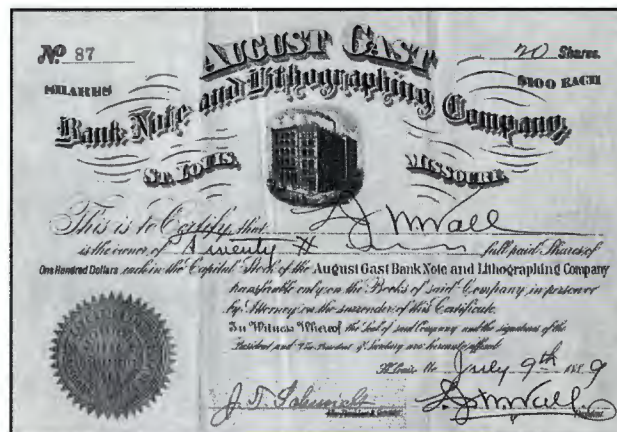 No. 87
20 Shares
SHARES
$100 EACH
AUGUST GAST
Bank Note and Lithographing Company,
ST. LOUIS, MISSOURI.
This is to Certify that L J W Wall
is the owner of Twenty full paid Shares of
One Hundred Dollars each in the Capital Stock of the August Gast Bank Note and Lithographing Company
transferable only on the Books of said Company in person or
by Attorney on the surrender of this Certificate.
In Witness Whereof the Seal of said Company and the signatures of the
President and Secretary are hereunto affixed.
St. Louis, Mo. July 9th 1889
J. T. Schmidt L J W Wall
President